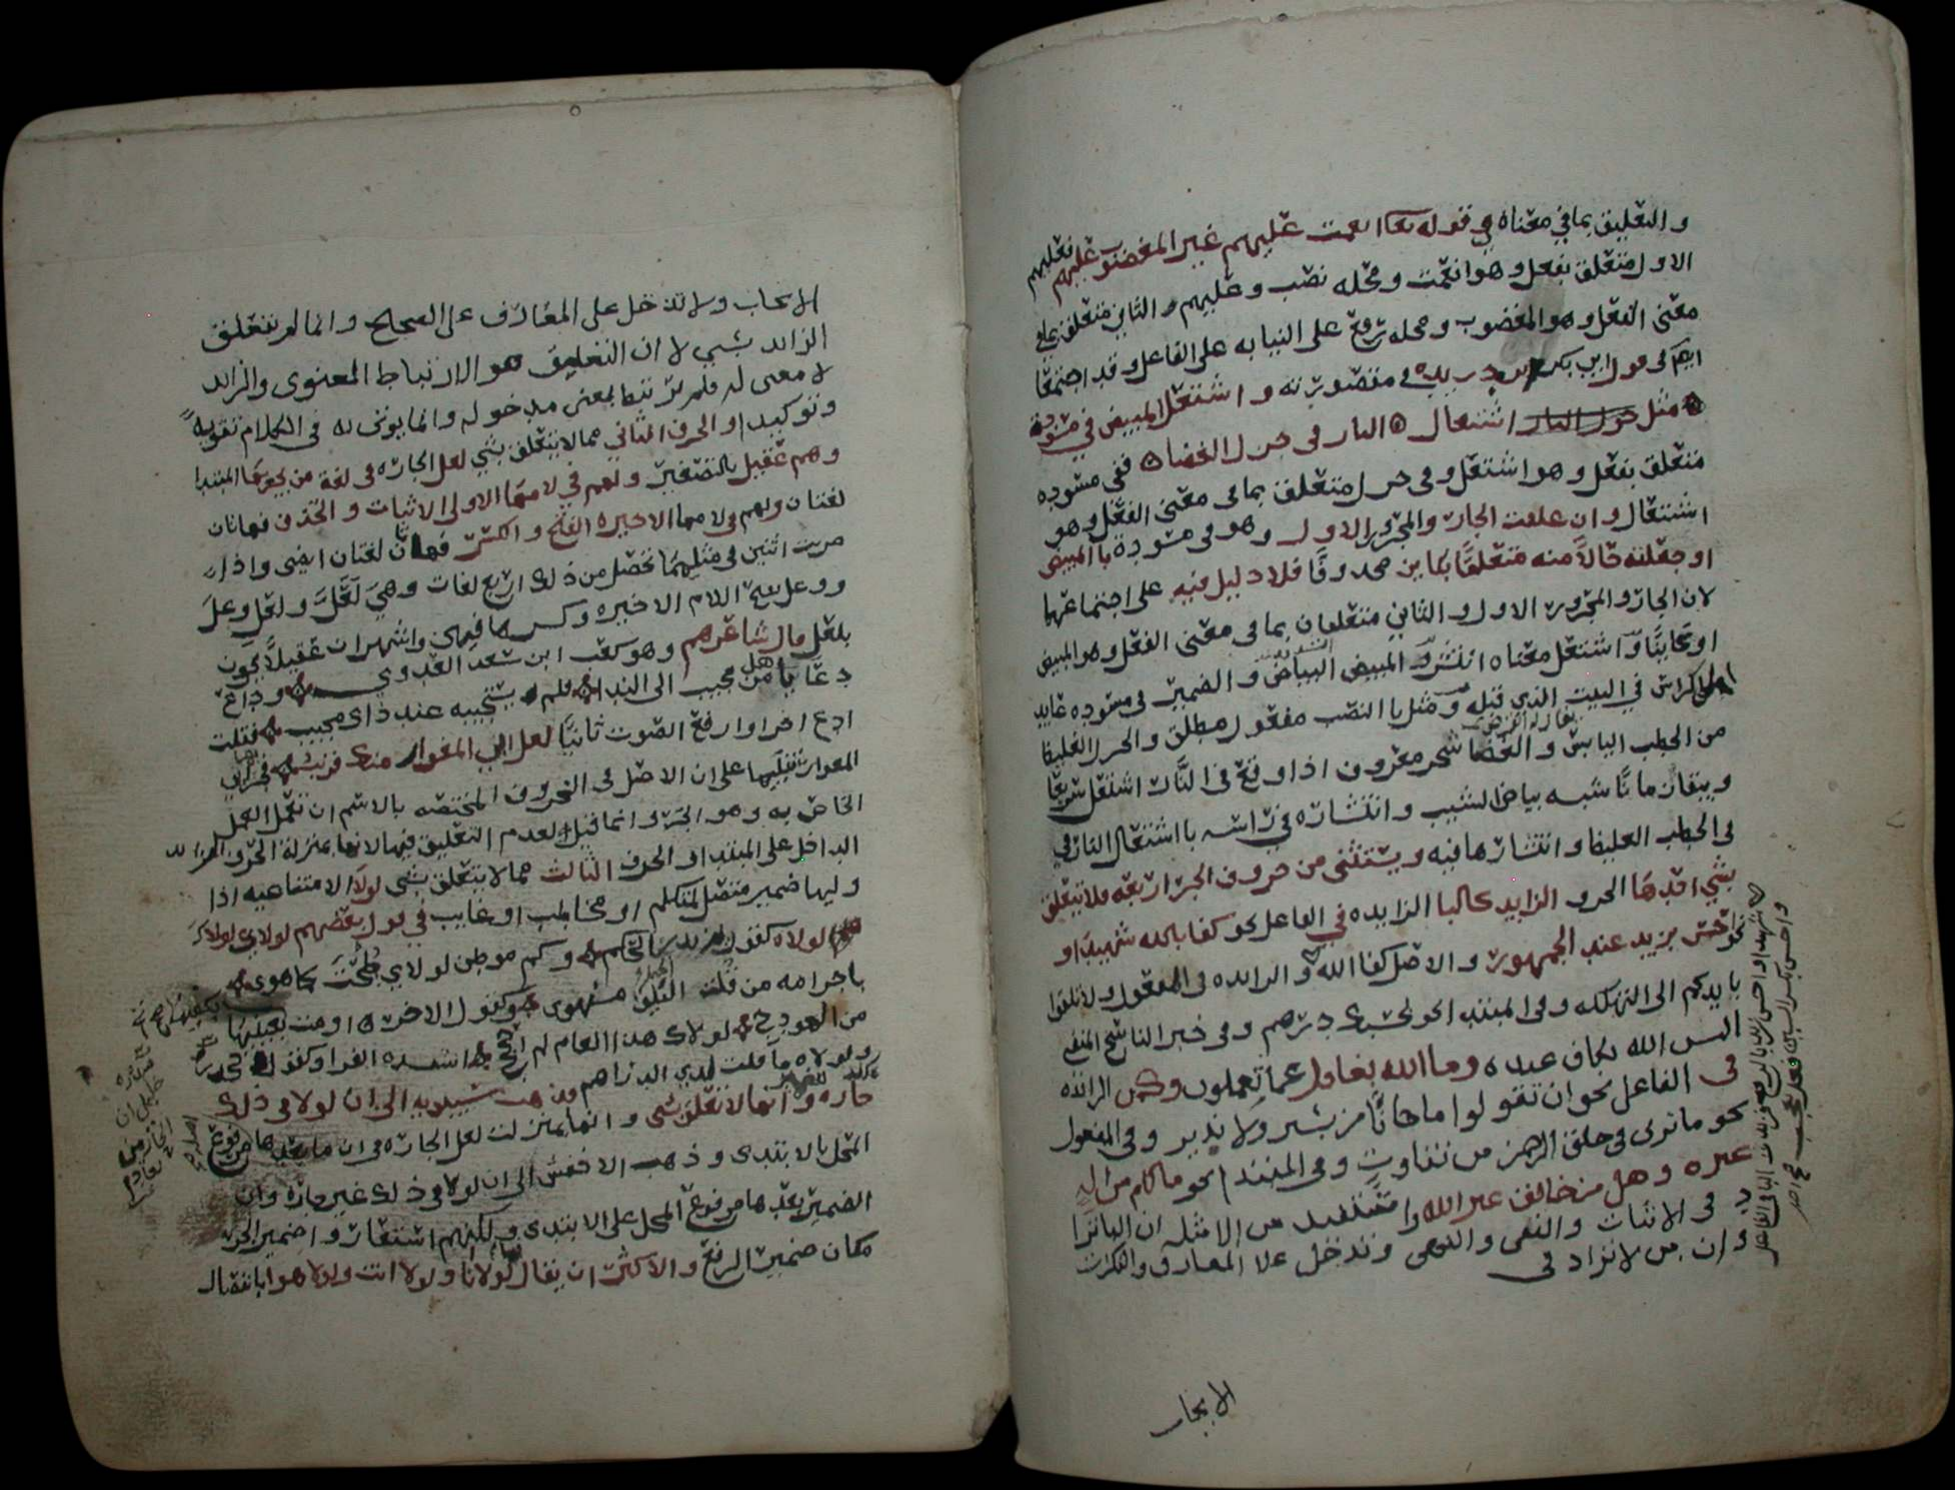 والتعليق بما في معناه في قوله تعا انعمت عليهم غير المغضوب عليهم فعليهم
الاول متعلق بفعل وهو انعمت ومحله نصب وعليهم والثاني متعلق بما في
معنى الفعل وهو المغضوب ومحله رفع على النيابه على الفاعل وقد اجتمعا
ايض في قول ابي بكر بن دريد في مقصورته واشتعل المبيض في مسوده
مثل اشتعال النار في جزل الغضا ففي مسوده
متعلق بفعل وهو اشتعل وفي جزل متعلق بما في معنى الفعل وهو
اشتعال وان علقت الجار والمجرور الاول وهو في مسودة بالمبيض
او جعلته حالاً منه متعلقًا بكاين محدوفًا فلا دليل فيه على اجتماعهما
لان الجار والمجرور الاول والثاني متعلقان بما في معنى الفعل وهو المبيض
او كاينًا واشتعل معناه انتشر المبيض البياض والضمير في مسوده عايد
الراس في البيت الذي قبله ومثل بالنصب مفعول مطلق والجزل الغليظ
من الحطب اليابس والغضا شجر معروف اذا وقع في النار اشتعل سريعًا
ويبقا زمانًا شبه بياض الشيب وانتشاره في راسه باشتعال النار في
في الحطب الغليظ وانتشارها فيه ويستثنى من حروف الجر اربعه فلا تتعلق
بشي احدها الحرف الزايد كالبا الزايده في الفاعل نحو كفا بالله شهيدا و
نحو احسن بزيد عند الجمهور والاصل كفا الله والزايده في المفعول ولا تلقوا
بايديكم الى التهلكه وفي المبتدا نحو بحسبك درهم وفي خبر الناسخ المنفي
اليس الله بكاف عبده وما الله بغافل عما تعملون وكمن الزائده
في الفاعل نحو ان تقولوا ما جانا من بشير ولا نذير وفي المفعول
نحو ما ترى في خلق الرحمن من تفاوت وفي المبتدا نحو ما لكم من اله
غيره وهل من خالق غير الله واستفيد من الامثله ان البا تزاد
في الاثبات والنفي والنهي وتدخل علا المعارف والنكرات
وان من لا تزاد في
الايجاب
الايجاب ولا تدخل على المعارف على الصحيح وانما لم تتعلق
الزائد بشي لان التعليق هو الارتباط المعنوي والزائد
لا معنى له فلم يرتبط بمعنى مدخوله وانما يوتى له في الكلام تقويةً
وتوكيدا والحرف الثاني مما لا يتعلق بشي لعل الجاره في لغة من يجر بها المبتدا
وهم عقيل بالتصغير ولهم في لامها الاولى الاثبات والحذف فهاتان
لغتان ولهم في لامها الاخيره الفتح والكسر فهاتان لغتان ايضى واذا
ضربت اثنين في مثليهما تحصل من ذلك اربع لغات وهي لَعَلَّ ولعلِّ وعلَّ
وعل بفتح اللام الاخيره وكسرها فيهن واشهر ان عقيلا يجرون
بلعل قال شاعرهم وهو كعب ابن سعد الغدوي وداع
دعا يا من مجيب الى الندا فلم يستجيبه عند ذاك مجيب فقلت
ادع اخرا وارفع الصوت ثانيًا لعل ابي المغوار منك قريب
المغوار تنبيها على ان الاصل في الحروف المختصه بالاسم ان تعمل العمل
الخاص به وهو الجر وانما قيل لعدم التعليق فيها لانها بمنزلة الحرف الزائد
الداخل على المبتدا والحرف الثالث مما لا يتعلق بشي لولا الامتناعيه اذا
وليها ضمير متصل لمتكلم او مخاطب او غايب في قول بعضهم لولاي لولاك
لولاه كقول يزيد بن الحكم وكم موطن لولاي طحت كما هوى
باجرامه من قلت النيق منهوى وكقول الاخر اومت بعينيها
من الهودج لولاك هذا العام لم احج انشده الفرا وكقول
ولولاه ما قلت لدي الدراهم وذهب سيبويه الى ان لولا في ذلك
جاره وانها لا تتعلق بشي وانها بمنزلت لعل الجاره في ان ما بعدها مرفوع
المحل بالابتدى وذهب الاخفش الى ان لولا في ذلك غير جاره وان
الضمير بعدها مرفوع المحل على الابتدى ولكنهم استعاروا ضمير الجر
مكان ضمير الرفع والاكثر ان يقال لولا انا ولولا انت ولولا هو بانفصال